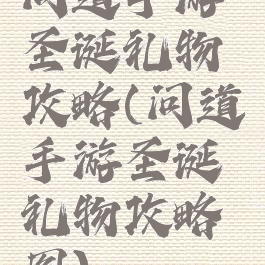 问道手游
圣诞礼物
攻略(问道
手游圣诞
礼物攻略
图)